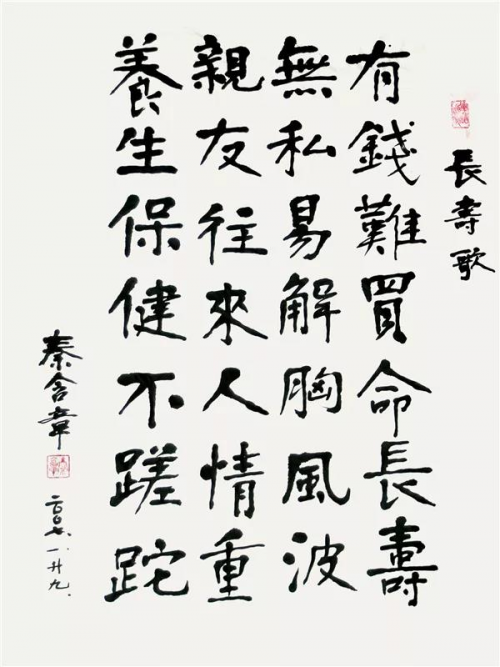 長壽歌
有錢難買命長壽
無私易解胸風波
親友往來人情重
養生保健不蹉跎
秦含章
二〇〇七.一.廿九.